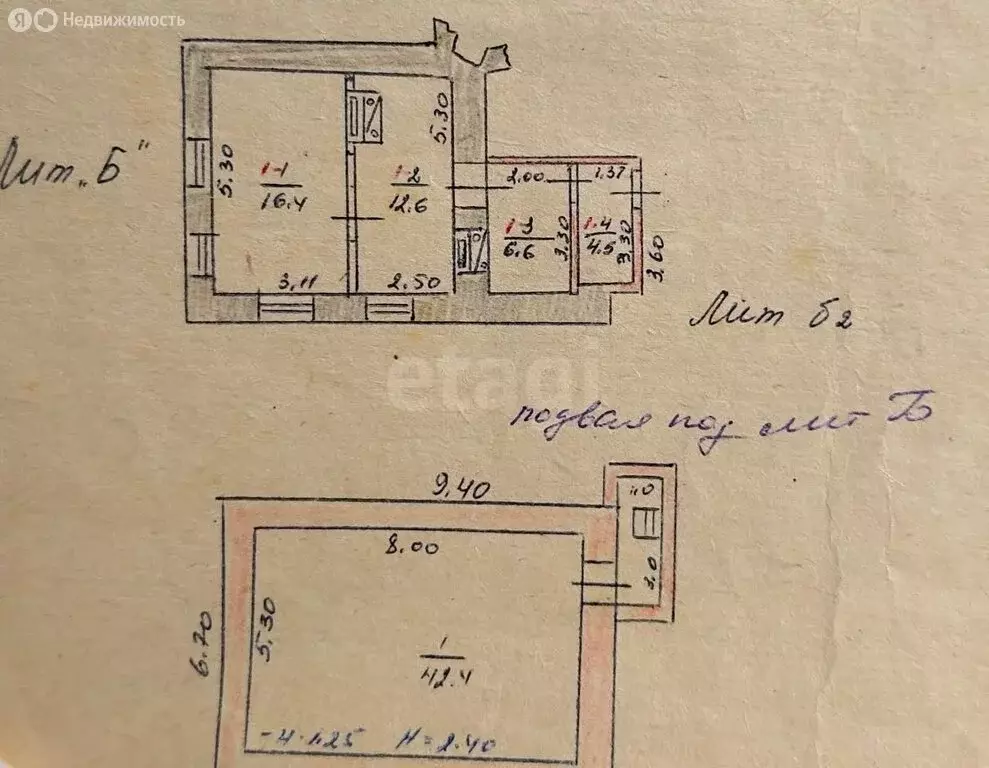 Я Недвижимость
Лит „Б"
5.30
1-1
16.4
3.11
1-2
12.6
2.50
5.30
2.00
1-3
6.6
3.30
1.37
1.4
4.5
3.30
3.60
Лит б2
etagi
подвал под лит Б
9.40
8.00
6.70
5.30
1
42.4
3.0
H=2.40